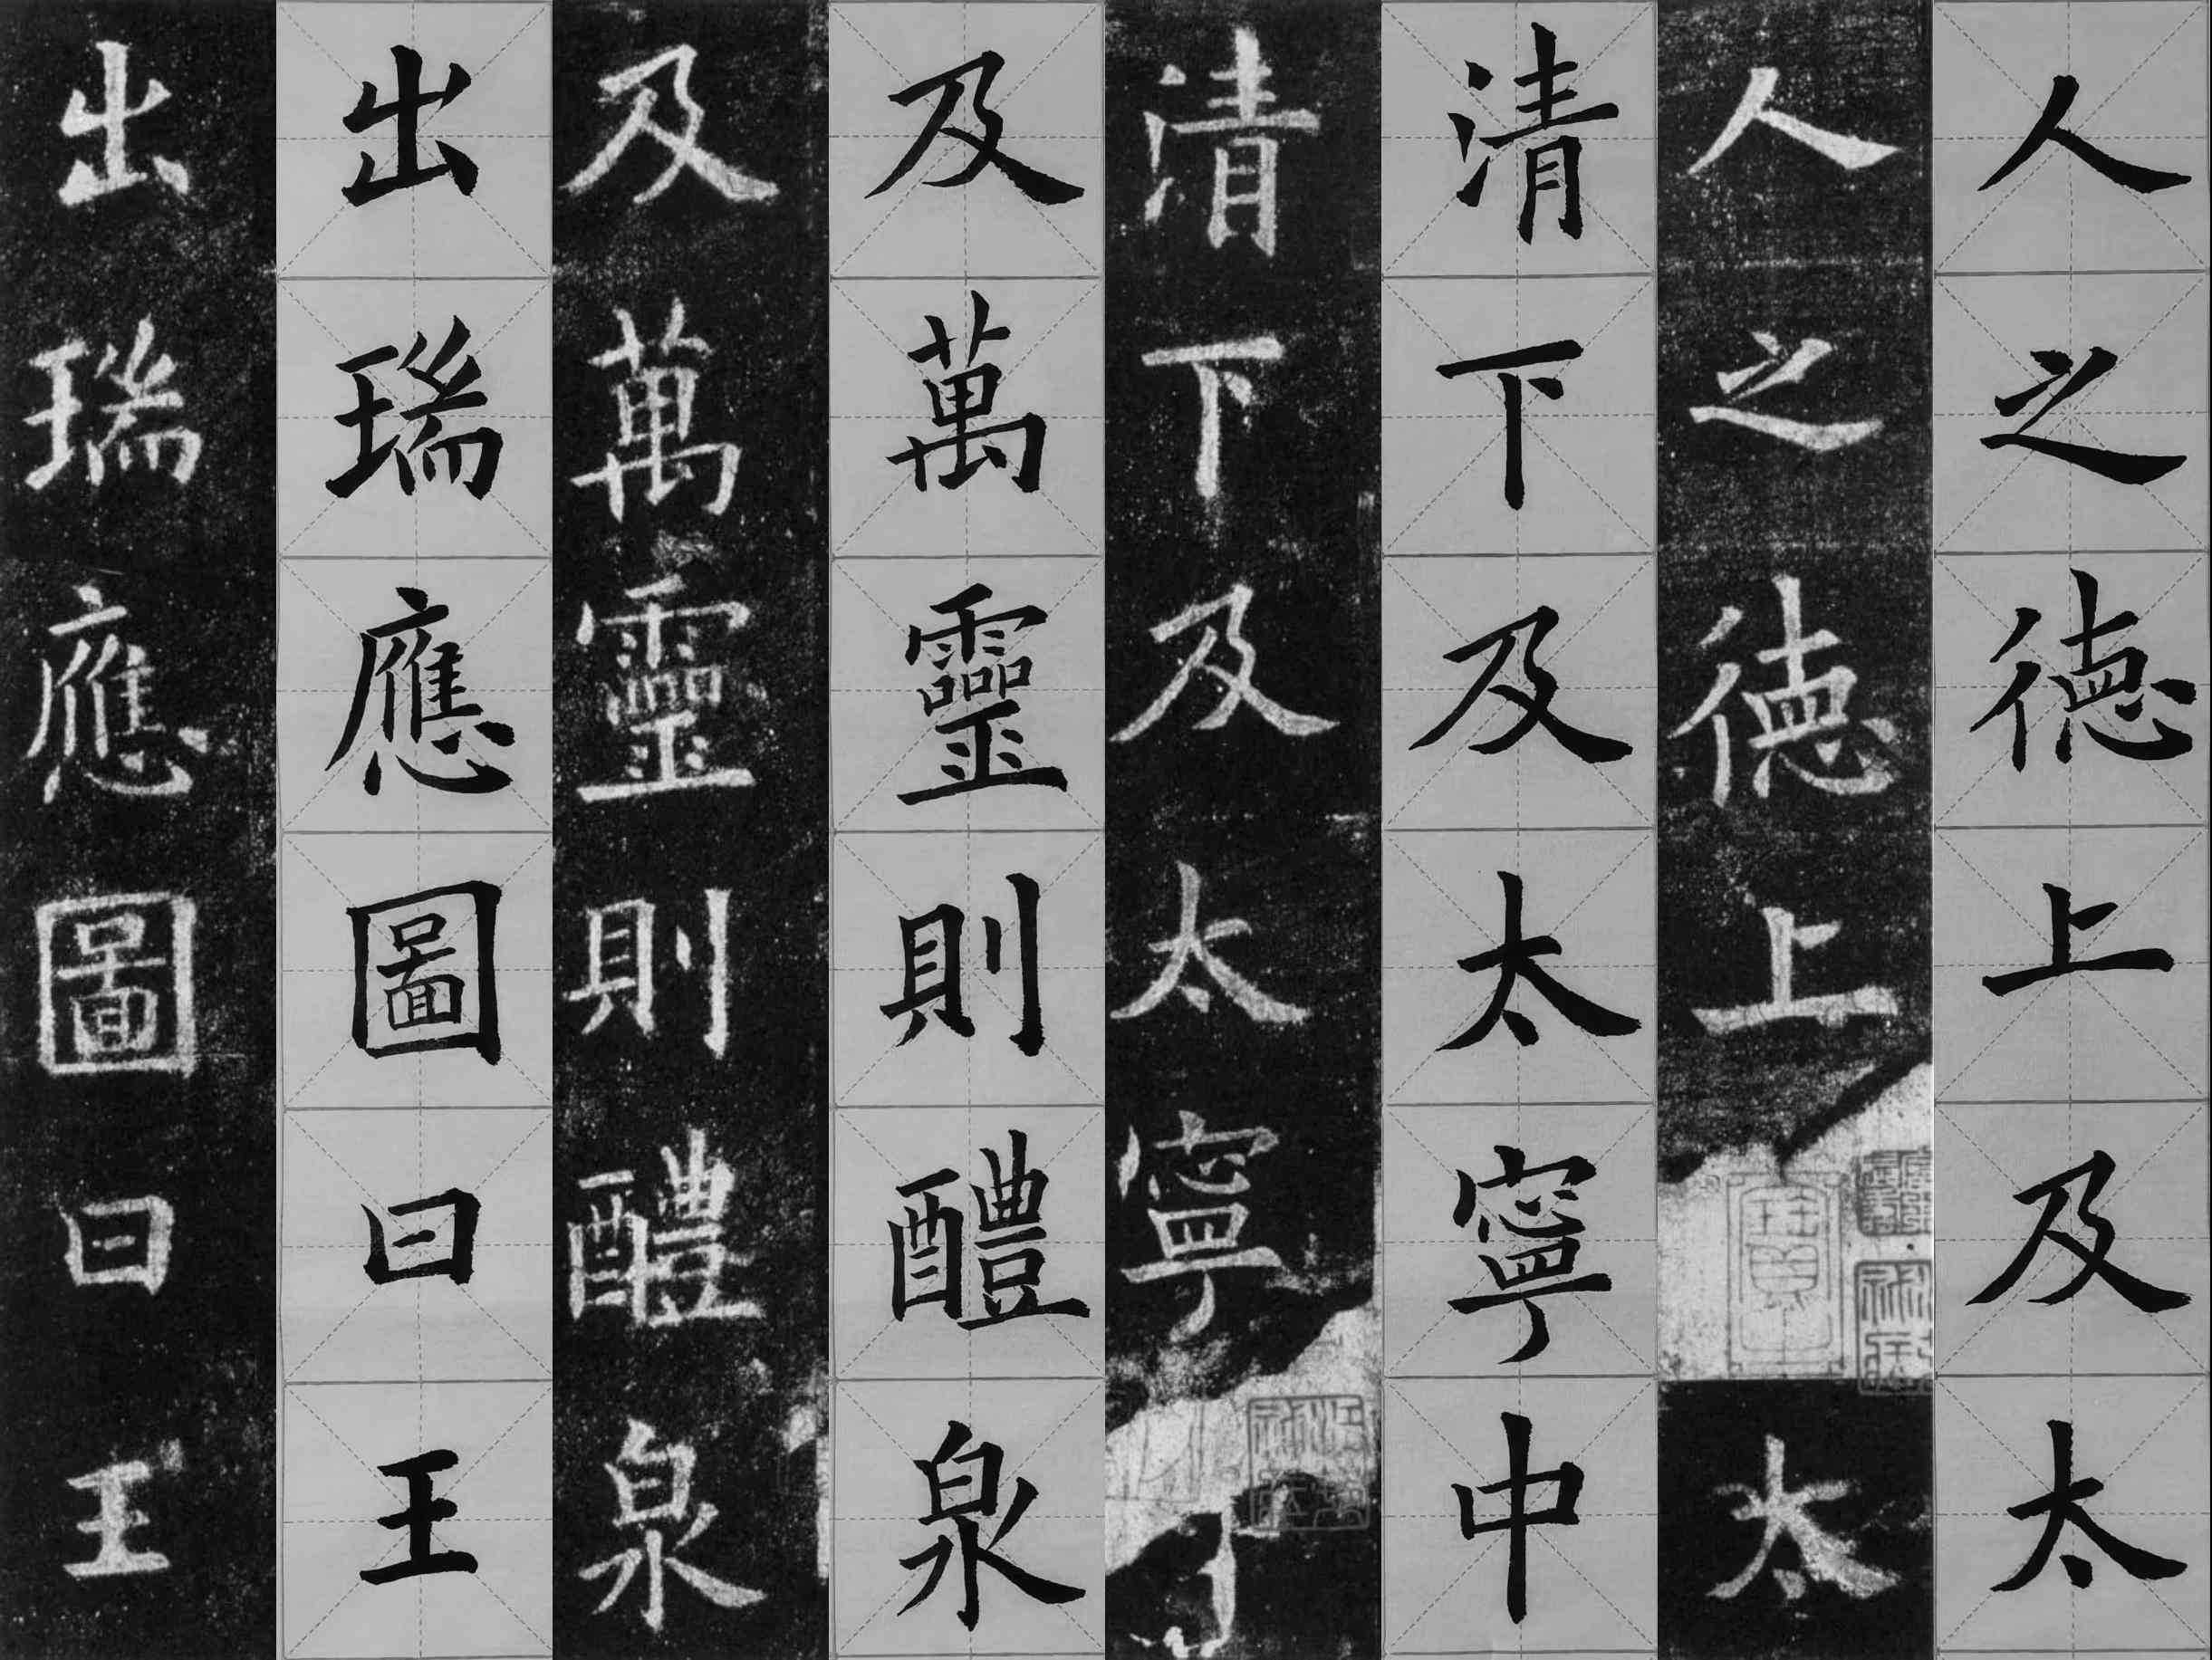 人之德上及太
人之德上太
清下及太寧中
清下及太寧
及萬靈則醴泉
及萬靈則醴泉
出瑞應圖曰王
出瑞應圖曰王